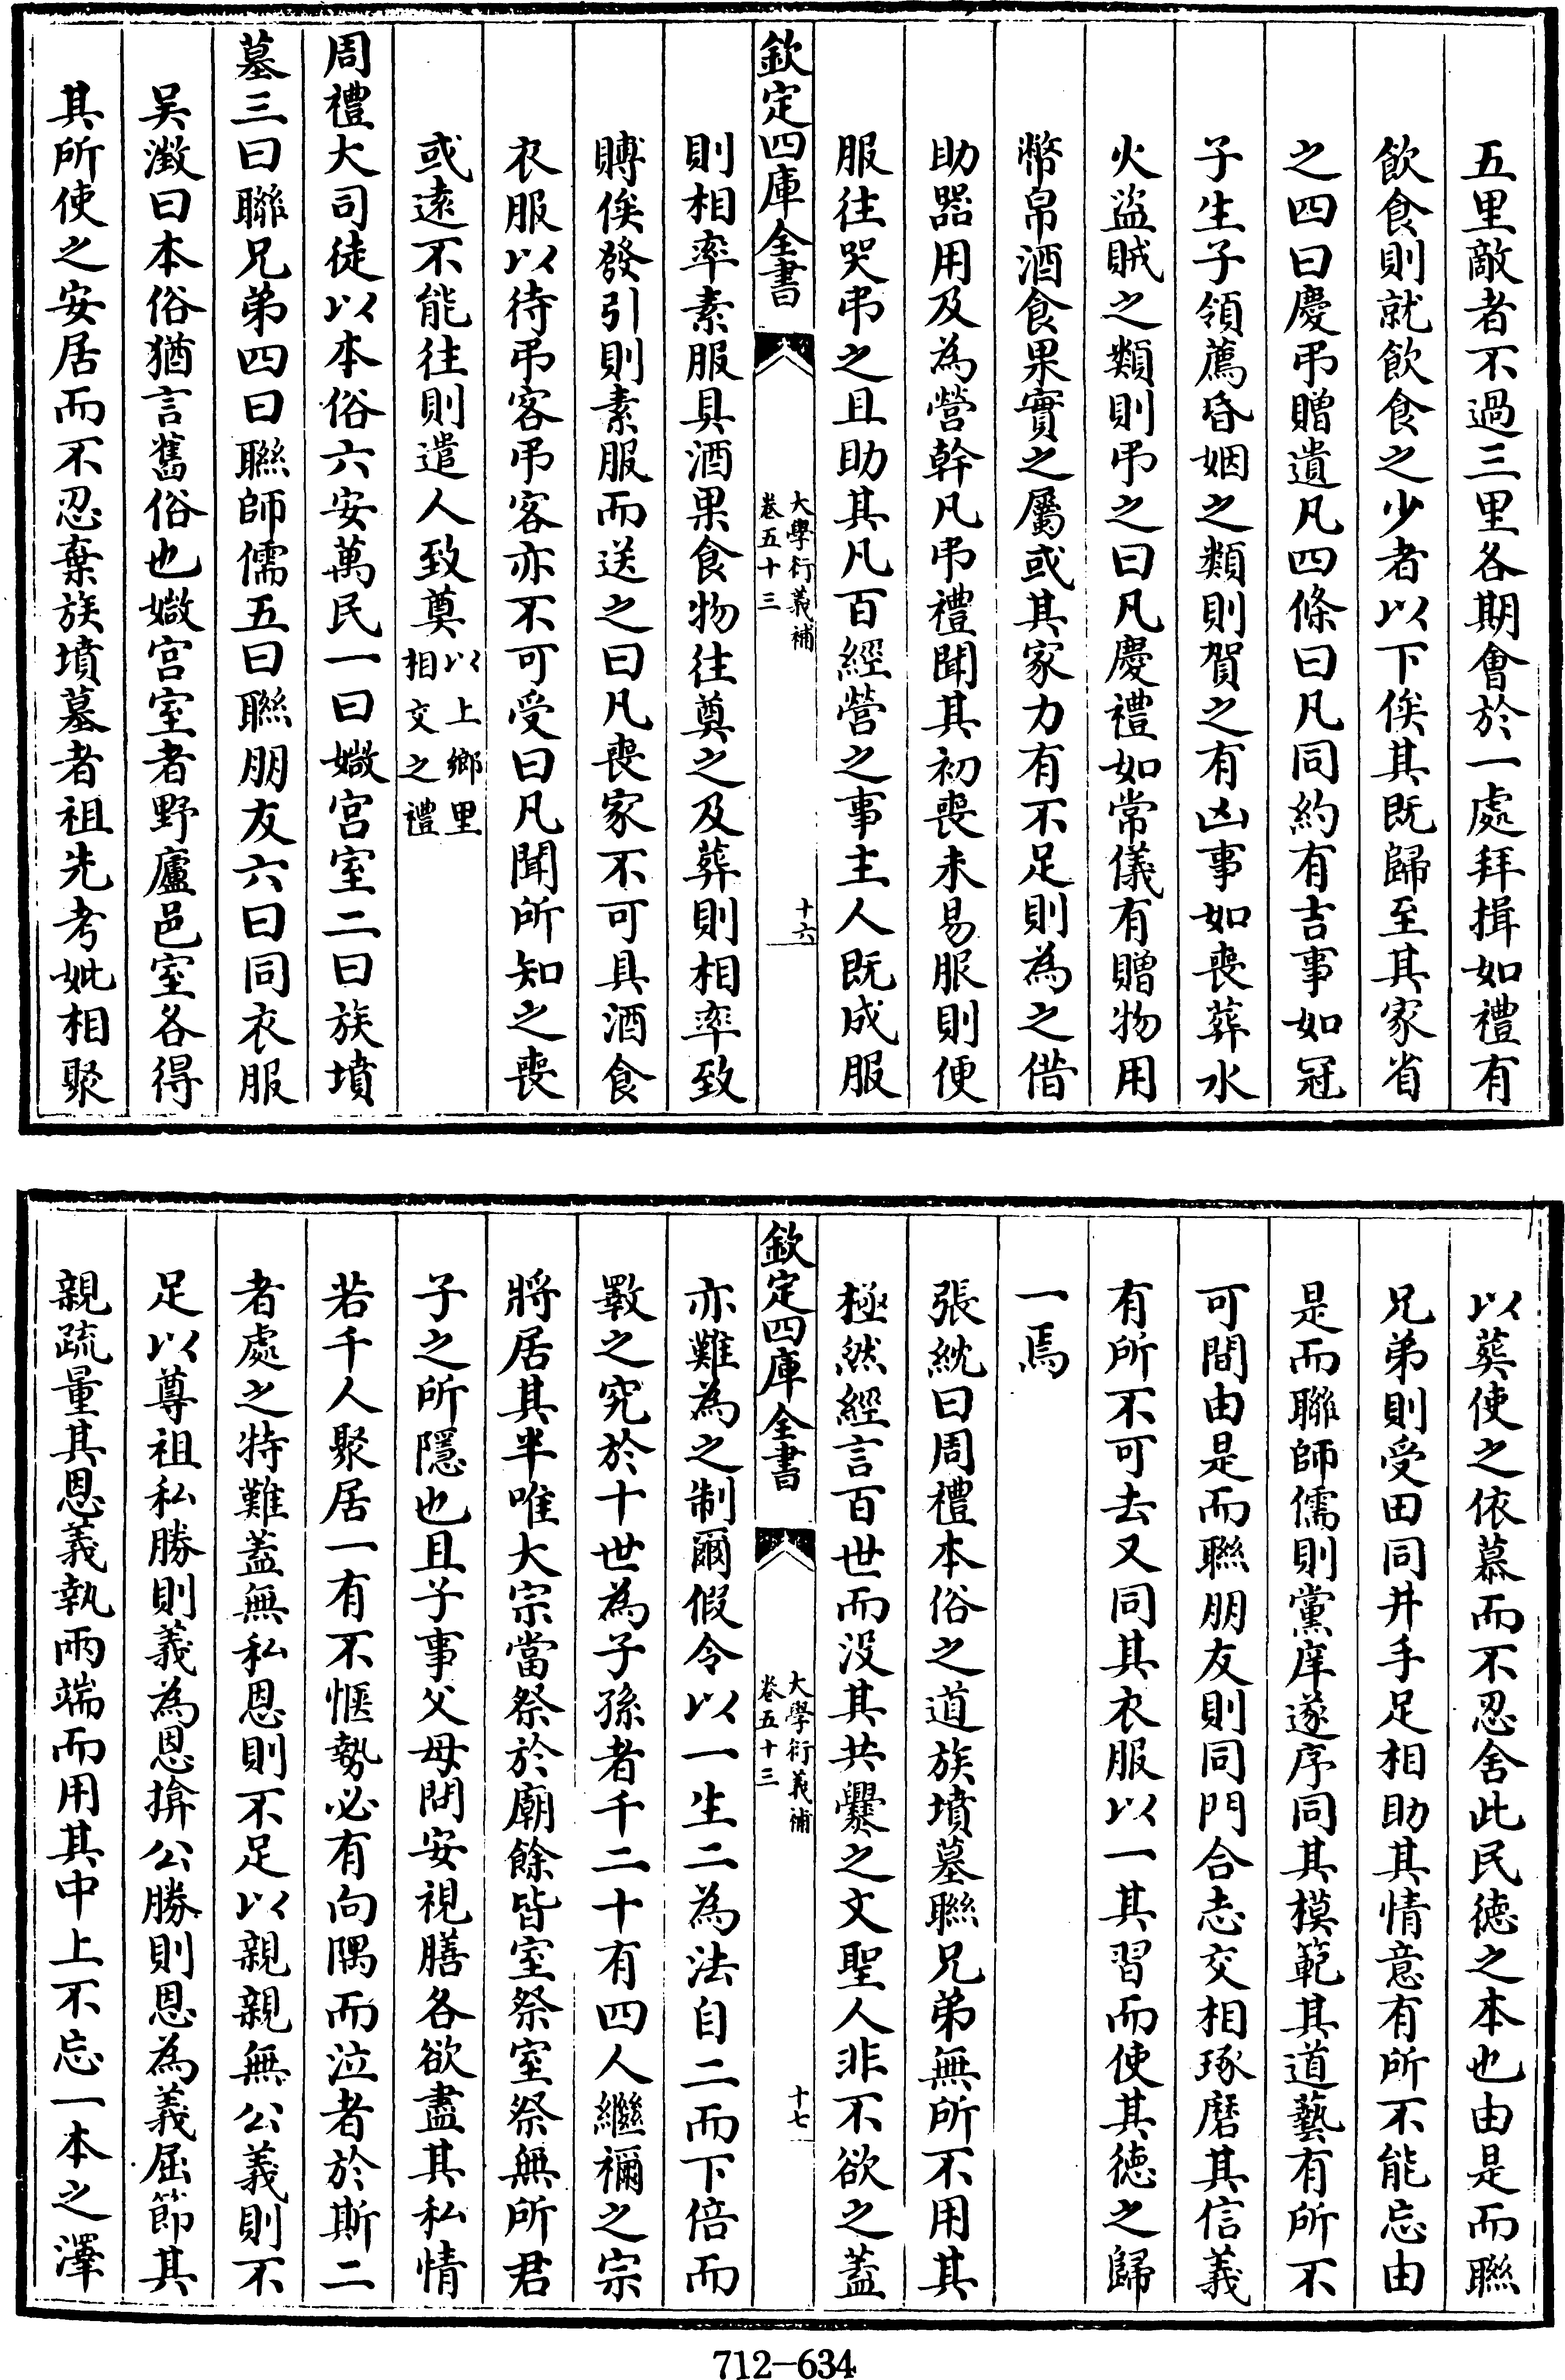 五里敵者不過三里各期會於一處拜揖如禮有
飲食則就飲食之少者以下俟其既歸至其家省
之四曰慶弔贈遺凡四條曰凡同約有吉事如冠
子生子領薦昏姻之類則賀之有凶事如喪葬水
火盜賊之類則弔之曰凡慶禮如常儀有贈物用
幣帛酒食果實之屬或其家力有不足則為之借
助器用及為營幹凡弔禮聞其初喪未易服則便
服往哭弔之且助其凡百經營之事主人既成服
欽定四庫全書
大學衍義補
卷五十三
十六
則相率素服具酒果食物往奠之及葬則相率致
賻俟發引則素服而送之曰凡喪家不可具酒食
衣服以待弔客弔客亦不可受曰凡聞所知之喪
或遠不能往則遣人致奠以上鄉里相交之禮
周禮大司徒以本俗六安萬民一曰媺宫室二曰族墳
墓三曰聯兄弟四曰聯師儒五曰聯朋友六曰同衣服
吴澂曰本俗猶言舊俗也媺宫室者野廬邑室各得
其所使之安居而不忍棄族墳墓者祖先考妣相聚
以葬使之依慕而不忍舍此民徳之本也由是而聯
兄弟則受田同井手足相助其情意有所不能忘由
是而聯師儒則黨庠遂序同其模範其道藝有所不
可間由是而聯朋友則同門合志交相琢磨其信義
有所不可去又同其衣服以一其習而使其徳之歸
一焉
張紞曰周禮本俗之道族墳墓聯兄弟無所不用其
極然經言百世而没其共爨之文聖人非不欲之蓋
欽定四庫全書
大學衍義補
卷五十三
十七
亦難為之制爾假令以一生二為法自二而下倍而
斁之究於十世為子孫者千二十有四人繼禰之宗
將居其半唯大宗當祭於廟餘皆室祭室祭無所君
子之所隱也且子事父母問安視膳各欲盡其私情
若千人聚居一有不愜勢必有向隅而泣者於斯二
者處之特難蓋無私恩則不足以親親無公義則不
足以尊祖私勝則義為恩揜公勝則恩為義屈節其
親疏量其恩義執兩端而用其中上不忘一本之澤
712-634